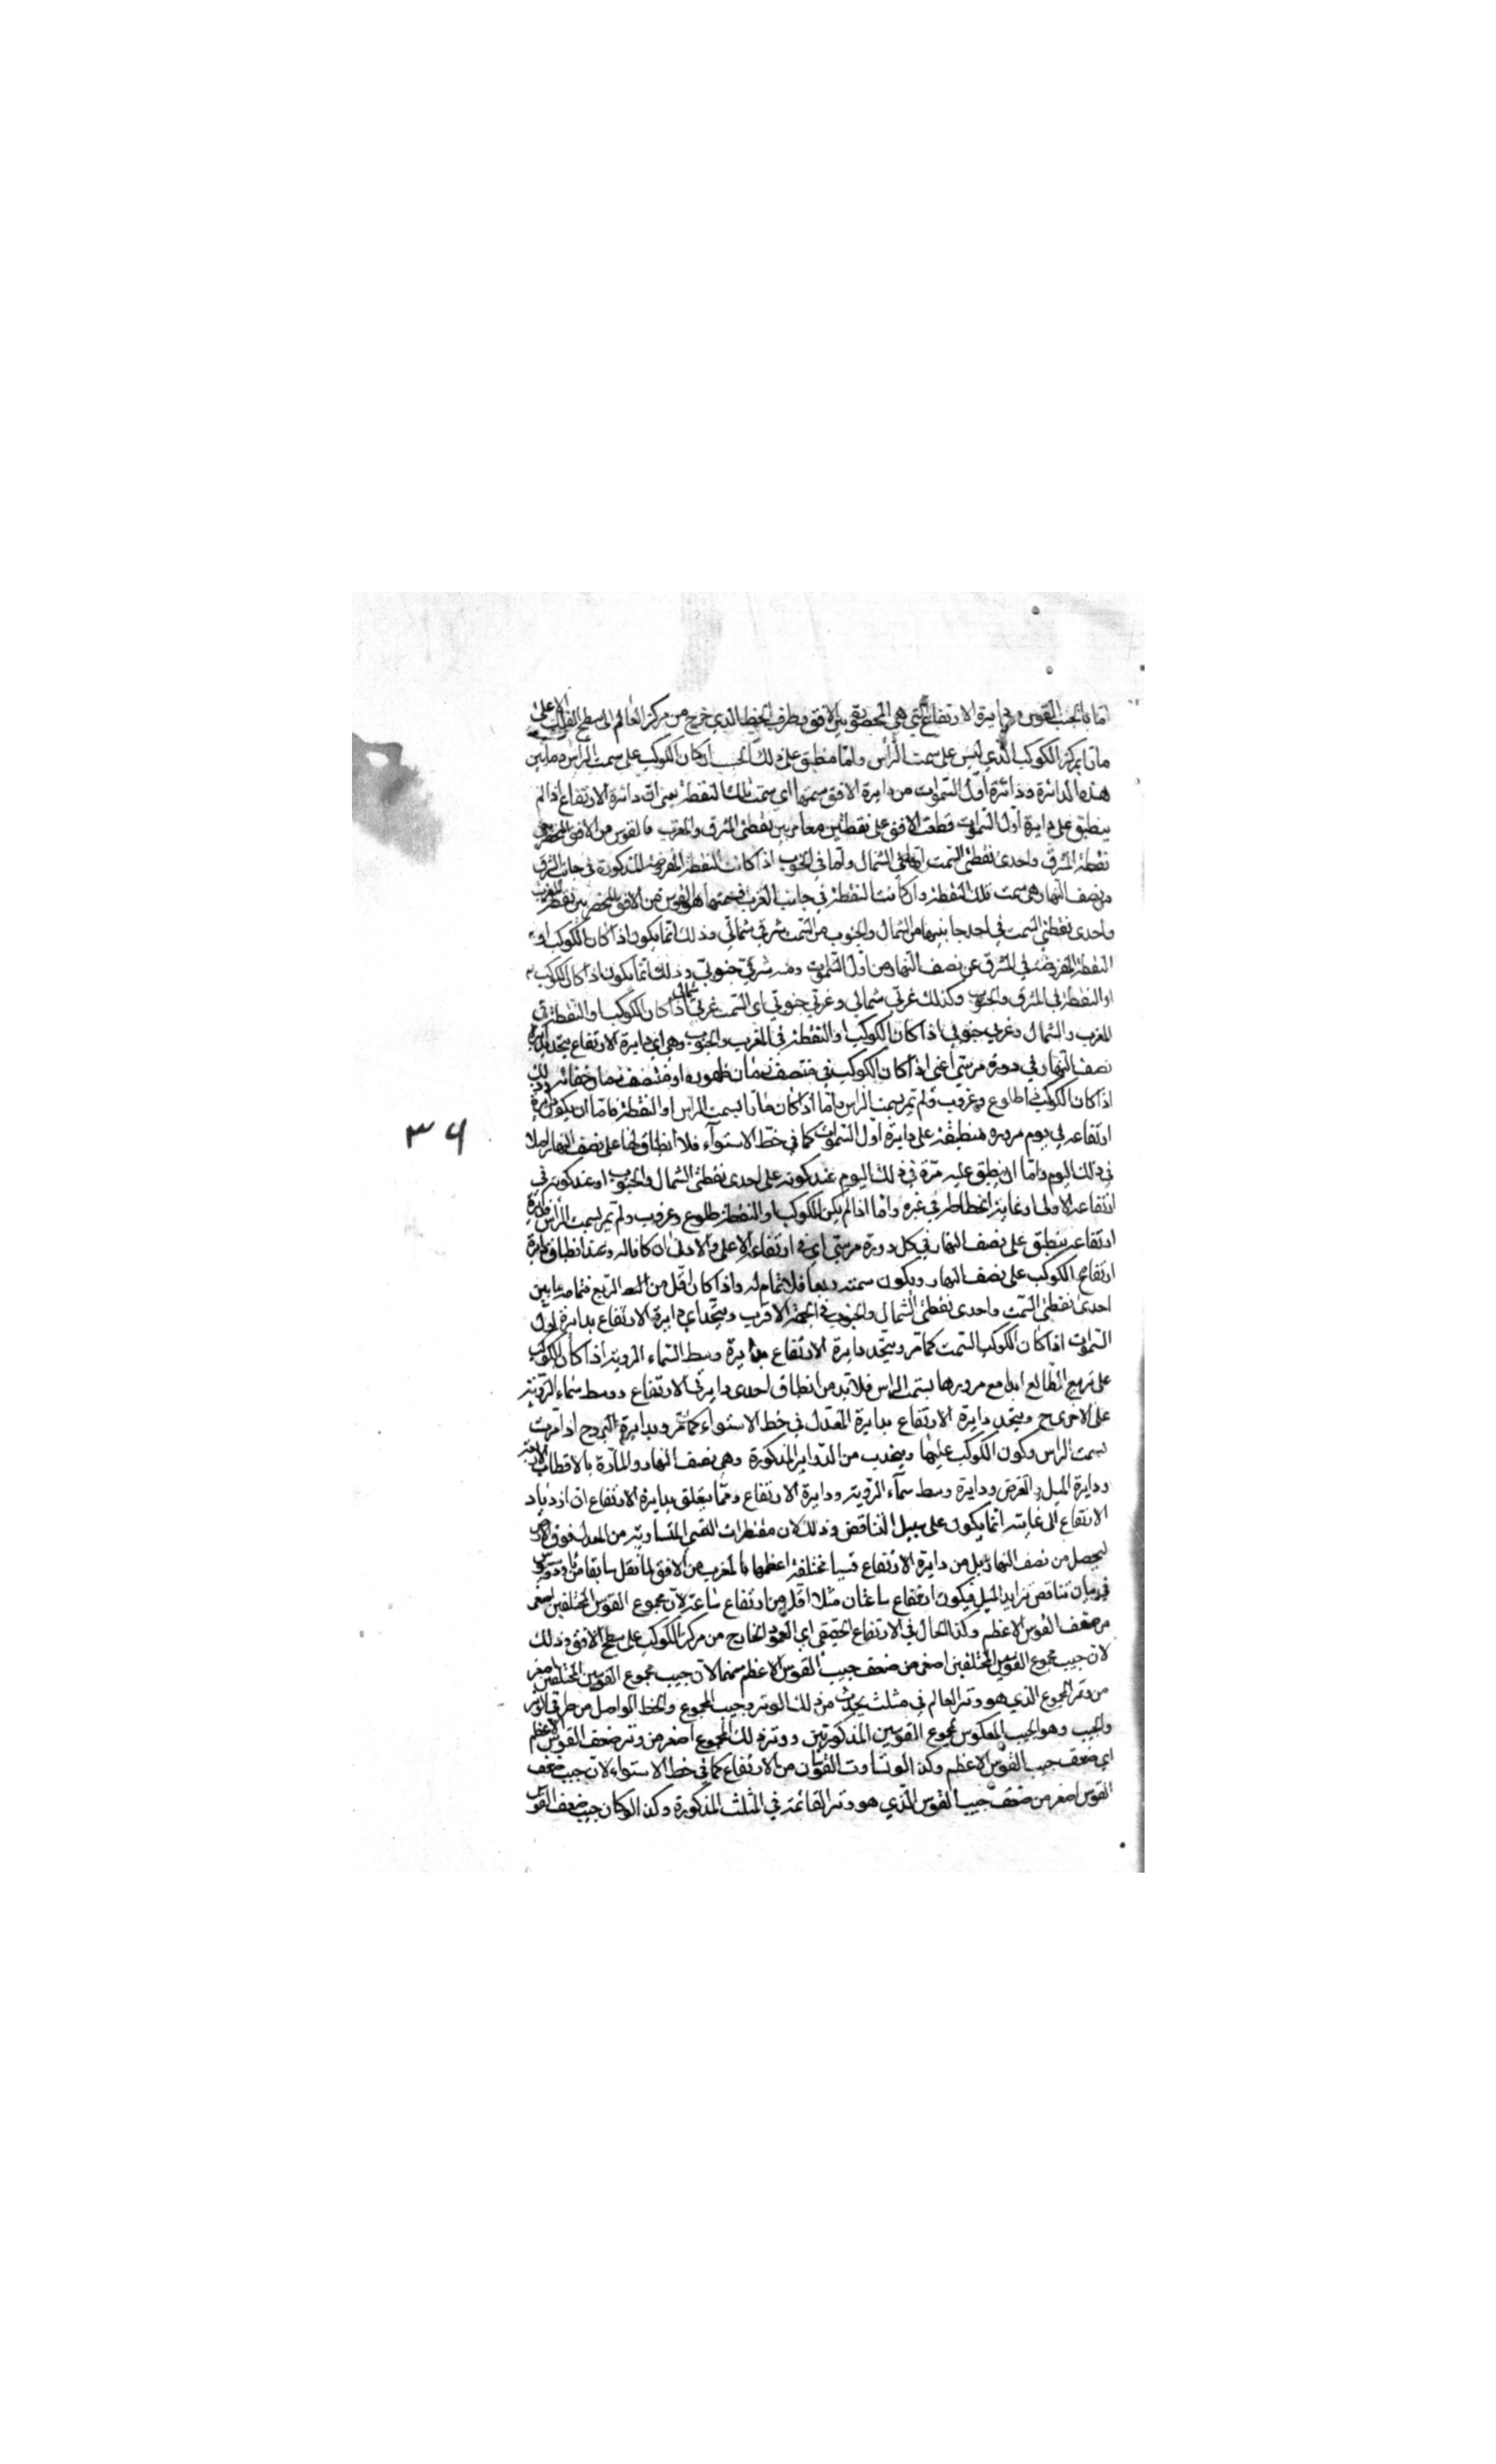 اما بالجب القوس من دايرة الارتفاع التي هي المحصورة بين الافق وطرف الخط الذي خرج من مركز العالم الى سطح الفلك الاعلى
مارا بمركز الكوكب الذي ليس على سمت الراس واما منطبق على ذلك الجب ان كان الكوكب على سمت الراس وما بين
هذه الدائرة ودائرة اول السموت من دايرة الافق سمتها اي سمت تلك النقطة يعني ان دائرة الارتفاع اذا لم
ينطبق على دايرة اول السموت قطعت الافق على نقطتين مغايرتين نقطتي المشرق والمغرب فالقوس من الافق المنحصر بين
نقطة المشرق واحدى نقطتي السمت اما في الشمال واما في الجنوب اذا كانت النقطة المفروضة المذكورة في جانب الشرق
من نصف النهار هي سمت تلك النقطة وان كانت النقطة في جانب الغرب فسمتها هو القوس من الافق المنحصر بين نقطة المغرب
واحدى نقطتي السمت في احد جانبيها من الشمال والجنوب من السمت شرقي شمالي وذلك انما يكون اذا كان الكوكب او
النقطة المفروضة في المشرق عن نصف النهار ومن اول السموت ومنه شرقي جنوبي وذلك انما يكون اذا كان الكوكب
او النقطة في المشرق والجنوب وكذلك غربي شمالي وغربي جنوبي اي السمت غربي شمالي اذا كان الكوكب او النقطة في
المغرب والشمال وغربي جنوبي اذا كان الكوكب او النقطة في المغرب والجنوب وهي اي دايرة الارتفاع يتحد بدايرة
نصف النهار في دورة مرتين اعني اذا كان الكوكب في منتصف زمان ظهوره او منتصف زمان خفائه وذلك
اذا كان الكوكب ذا طلوع وغروب ولم تمر بسمت الراس واما اذا كان مارا بسمت الراس او النقطة فاما ان يكون دايرة
ارتفاعه في يوم مروره منطبقة على دايرة اول السموت كما في خط الاستواء فلا انطباق لها على نصف النهار اصلا
في ذلك اليوم واما ان ينطبق عليه مرة في ذلك اليوم عند كونه على احدى نقطتي الشمال والجنوب او عند كونه في
ارتفاعه الاولى او غاية انحطاطه في غيره واما اذا لم يكن للكوكب او النقطة طلوع وغروب ولم تمر بسمت الراس فدايرة
ارتفاعه ينطبق على نصف النهار في كل دورة مرتين اي في ارتفاعه الاعلى والادنى ان كانا له وعند انطباق دايرة
ارتفاع الكوكب على نصف النهار ويكون سمته ربعا فلا تمام له واذا كان اقل من الربع فتمامه ما بين
احدى نقطتي السمت واحدى نقطتي الشمال والجنوب في الجهة الاقرب ويتحد اي دايرة الارتفاع بدايرة اول
السموت اذا كان الكوكب السمت كما مر ويتحد دايرة الارتفاع بدايرة وسط السماء الروية اذا كان الكوكب
على تربيع الطالع ابدا مع مرورها بسمت الراس فلا بد من انطباق احدى دايرتي الارتفاع ووسط سماء الروية
على الاخرى ح ويتحد دايرة الارتفاع بدايرة المعدل في خط الاستواء كما مر وبدايرة البروج اذا مرت
بسمت الراس وكون الكوكب عليها من الدواير المذكورة وهي نصف النهار والمارة بالاقطاب الاربعة
ودايرة الميل والعرض ودايرة وسط سماء الروية ودايرة الارتفاع ومما يتعلق بدايرة الارتفاع ان ازدياد
الارتفاع الى غايته انما يكون على سبيل التناقص وذلك لان مقنطرات القسي المتساوية من المعدل فوق الارض
ليحصل من نصف النهار بل من دايرة الارتفاع قسيا مختلفة اعظمها بالقرب من الافق لما نقل سابقا من
في بيان تناقص تزايد الميل فيكون ارتفاع ساعتان مثلا اقل من ارتفاع ساعة لان مجموع القوسين المختلفين اصغر
من ضعف القوس الاعظم وكذا الحال في الارتفاع الحقيقي اي العمود الخارج من مركز الكوكب على سطح الافق وذلك
لان جيب مجموع القوسين المختلفين اصغر من ضعف جيب القوس الاعظم منهما لان جيب مجموع القوسين المختلفين اصغر
من وتر المجموع الذي هو وتر العالم في مثلث يحدث من ذلك الوتر وجيب المجموع والخط الواصل من طرفي الوتر
والجيب وهو الجيب المعكوس لمجموع القوسين المذكورتين ووتر ذلك المجموع اصغر من وتر ضعف القوس الاعظم
اي ضعف جيب القوس الاعظم وكذا لو تساوت القوسان من الارتفاع كما في خط الاستواء لان جيب ضعف
القوس اصغر من ضعف جيب القوس الذي هو وتر القائمة في المثلث المذكورة وكذا لو كان جيب ضعف القوس
٣٦